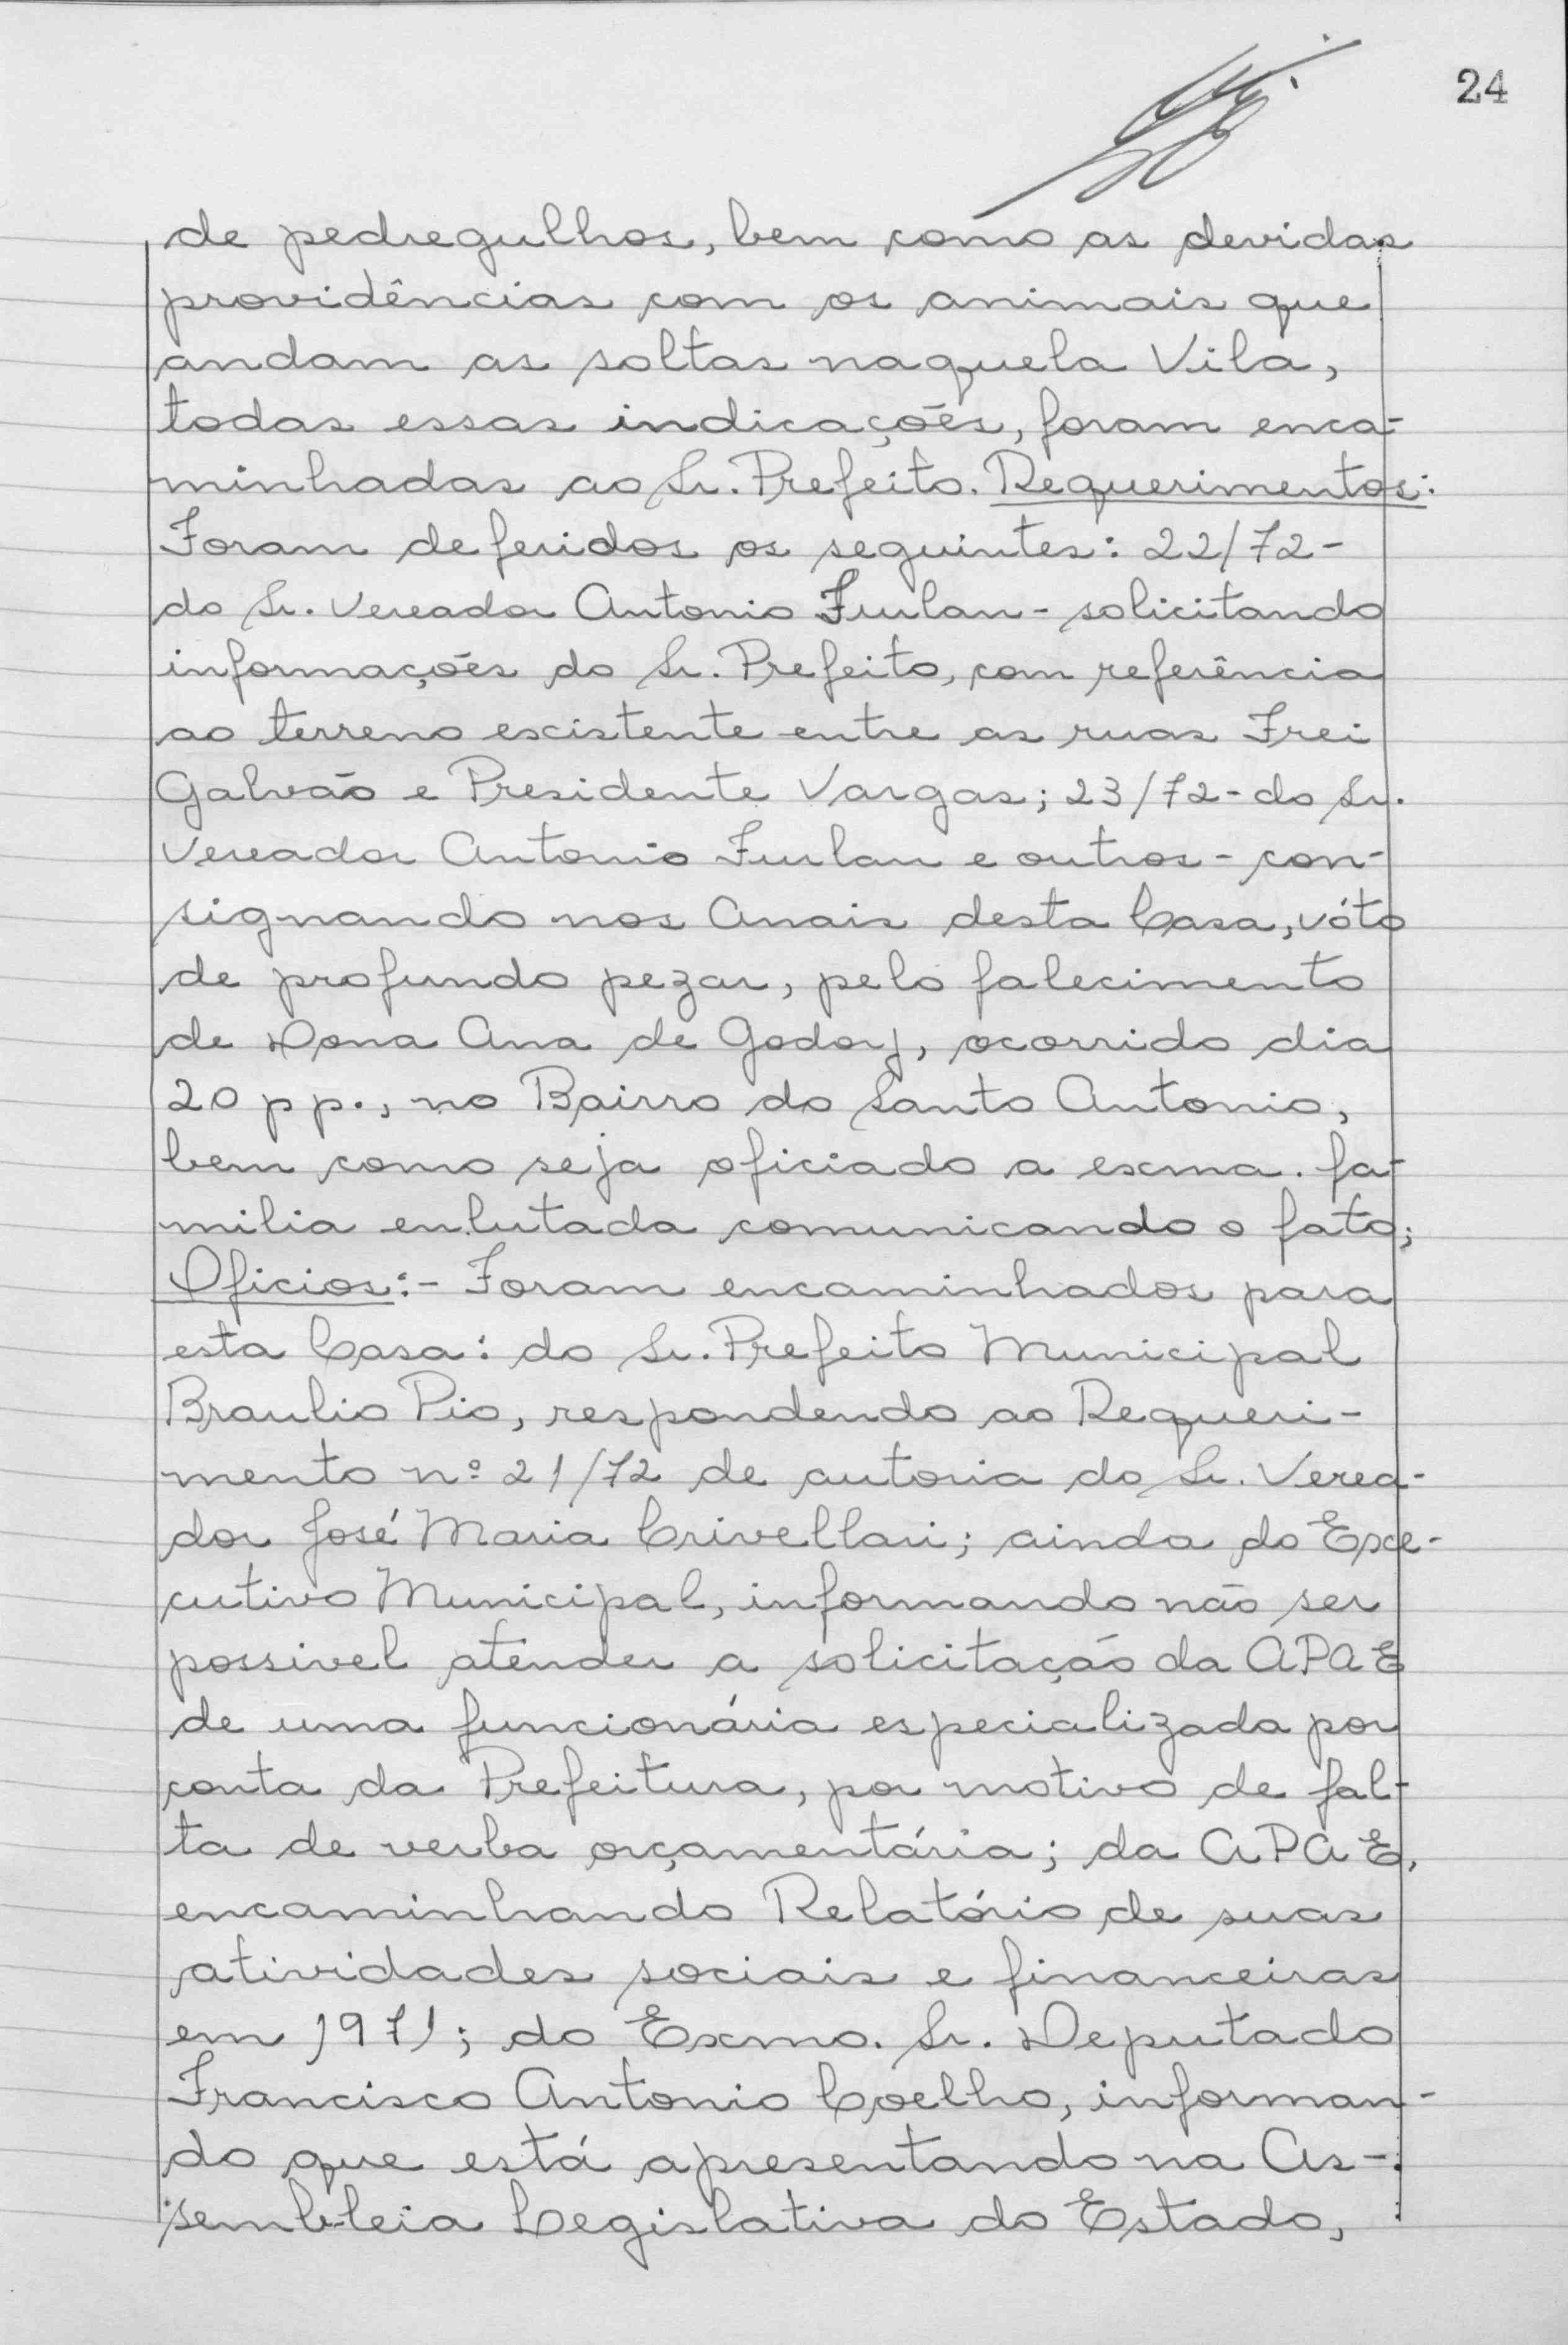 24
de pedregulhos, bem como as devidas
providências com os animais que
andam as soltas naquela Vila,
todas essas indicações, foram enca-
minhadas ao Sr. Prefeito. Requerimentos:
Foram deferidos os seguintes: 22/72-
do Sr. Vereador Antonio Furlan - solicitando
informações do Sr. Prefeito, com referência
ao terreno existente entre as ruas Frei
Galvão e Presidente Vargas; 23/72- do Sr.
Vereador Antonio Furlan e outros - con-
signando nos Anais desta Casa, vóto
de profundo pezar, pelo falecimento
de Dona Ana de Godoy, ocorrido dia
20 p p., no Bairro do Santo Antonio,
bem como seja oficiado a exma. fa-
milia enlutada comunicando o fato;
Oficios:- Foram encaminhados para
esta Casa: do Sr. Prefeito Municipal
Braulio Pio, respondendo ao Requeri-
mento nº 21/72 de autoria do Sr. Verea-
dor José Maria Crivellari; ainda do Exe-
cutivo Municipal, informando não ser
possivel atender a solicitação da APAE
de uma funcionária especializada por
conta da Prefeitura, por motivo de fal-
ta de verba orçamentária; da APAE,
encaminhando Relatório de suas
atividades sociais e financeiras
em 1971; do Exmo. Sr. Deputado
Francisco Antonio Coelho, informan-
do que está apresentando na As-
sembleia Legislativa do Estado,